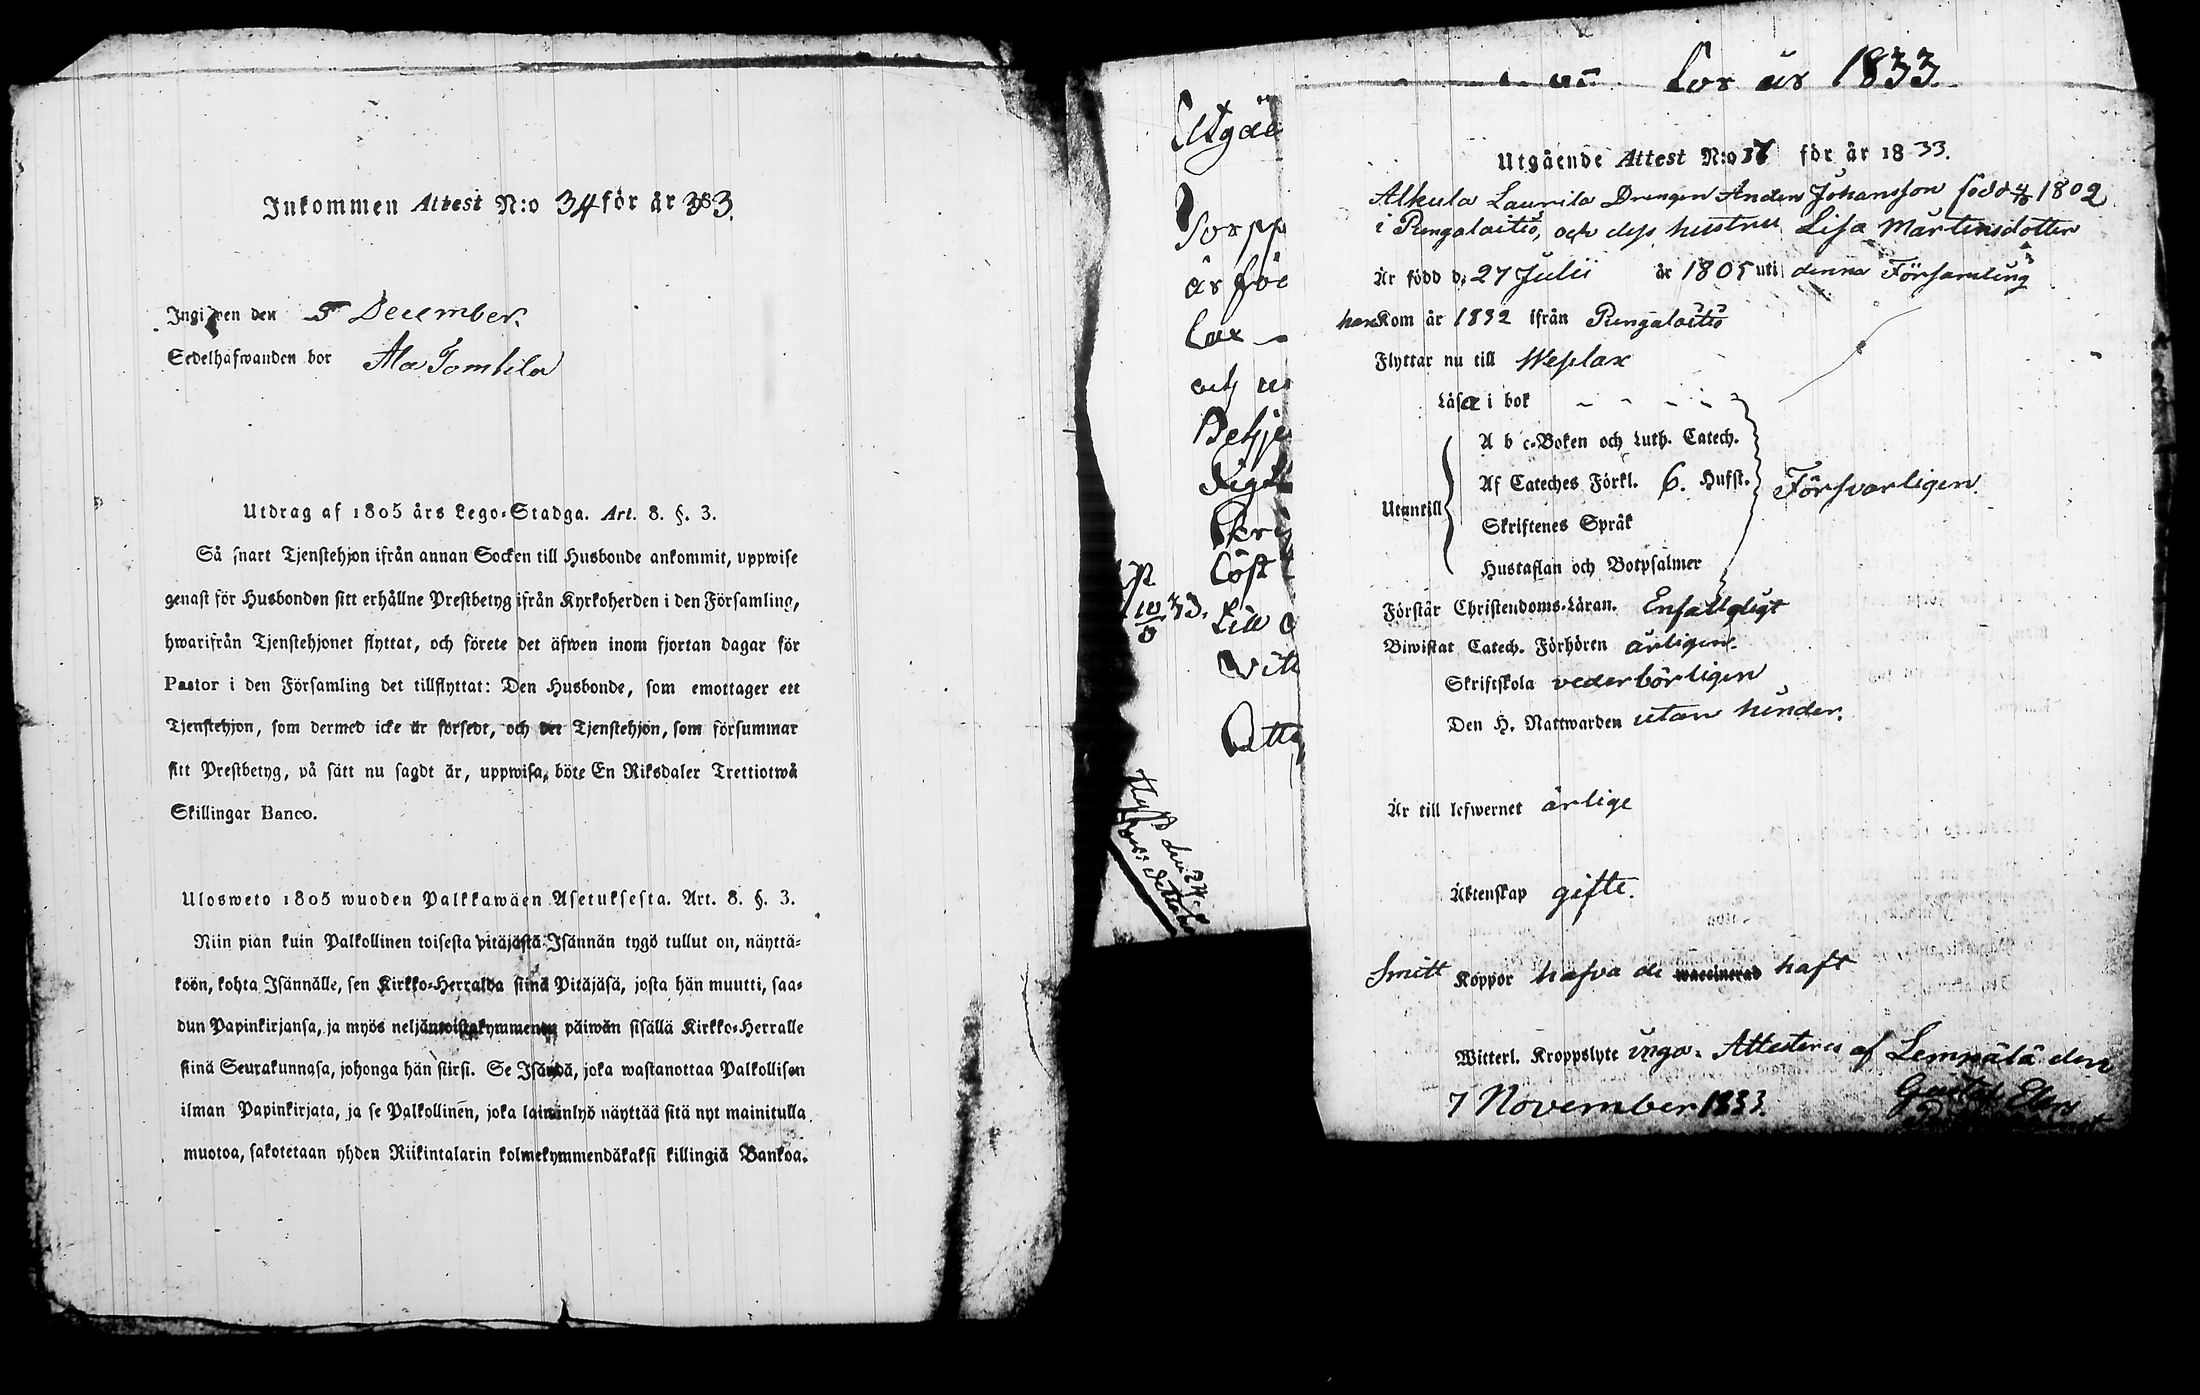 Inkommen Attest N:o 34 för år 333.
Ingifven den 5 December.
Sedelhafwanden bor Ala Tomhila
Utdrag af 1805 års Lego-Stadga. Art. 8. §. 3.
Så snart Tjenstehjon ifrån annan Socken till Husbonde ankommit, uppwise
genast för Husbonden sitt erhållne Prestbetyg ifrån Kyrkoherden i den Församling,
hwarifrån Tjenstehjonet flyttat, och förete det äfwen inom fjortan dagar för
Pastor i den Församling det tillflyttat: Den Husbonde, som emottager ett
Tjenstehjon, som dermed icke är försedt, och det Tjenstehjon, som försummar
sitt Prestbetyg, på sätt nu sagdt är, uppwisa, böte En Riksdaler Trettiotwå
Skillingar Banco.
Ulosweto 1805 wuoden Palkkawäen Asetuksesta. Art. 8. §. 3.
Niin pian kuin Palkollinen toisesta pitäjästä Isännän tygö tullut on, näyttä-
köön, kohta Isännälle, sen Kirkko-Herralda siinä Pitäjäsä, josta hän muutti, saa-
dun Papinkirjansa, ja myös neljäntoistakymmenen päiwän sisällä Kirkko-Herralle
siinä Seurakunnasa, johonga hän siirsi. Se Isändä, joka wastanottaa Palkollisen
ilman Papinkirjata, ja se Palkollinen, joka laiminlyö näyttää sitä nyt mainitulla
muotoa, sakotetaan yhden Riikintalarin kolmekymmendäkaksi killingiä Bankoa.
för år 1833.
Utgående Attest N:o 17 för år 1833.
Alkula Laurila Drengen Anders Johansson född 4/6 1802
i Pungalaitio, och dess hustru Lisa Mårtensdotter
Är född d. 27 Julii år 1805 uti denna Församling
han Kom år 1832 ifrån Pungalaitio
Flyttar nu till Wesilax
Läsa i bok
A b c-Boken och Luth. Catech.
Af Cateches Förkl. 6. Hufst. Försvarligen.
Utantill
Skriftenes Språk
Hustaflan och Botpsalmer
Förstår Christendoms-Läran. Enfalldligt
Biwistat Catech. Förhören årligen.
Skriftskola vederbörligen
Den H. Nattwarden utan hinder.
Är till lefwernet ärlige
Äktenskap gifte.
Smitt Koppor hafva de haft
Witterl. Kroppslyte inga. Attesteras af Lempälä den
7 November 1833.